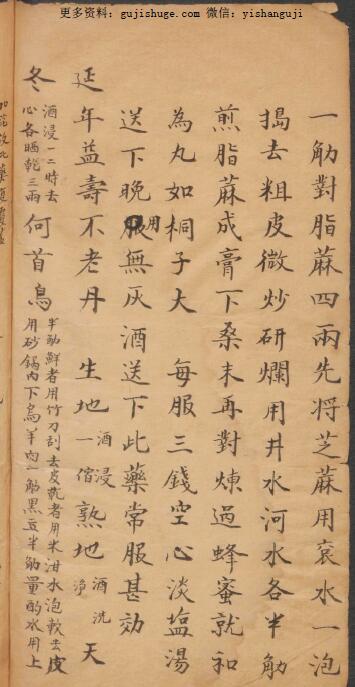 更多资料：gujishuge.com 微信：yishanguji
一觔對脂蔴四兩先将芝蔴用衮水一泡
搗去粗皮微炒研爛用井水河水各半觔
煎脂蔴成膏下桑末再對煉過蜂蜜就和
為丸如桐子大 每服三錢空心淡塩湯
送下晚服用無灰酒送下此藥常服甚効
延年益壽不老丹 生地酒浸一宿熟地酒洗淨天
冬酒浸一二時去心各晒乾三兩何首烏半觔鮮者用竹刀刮去皮乾者用米泔水泡軟去皮用砂鍋內下烏羊肉一觔黑豆半觔量酌水用上